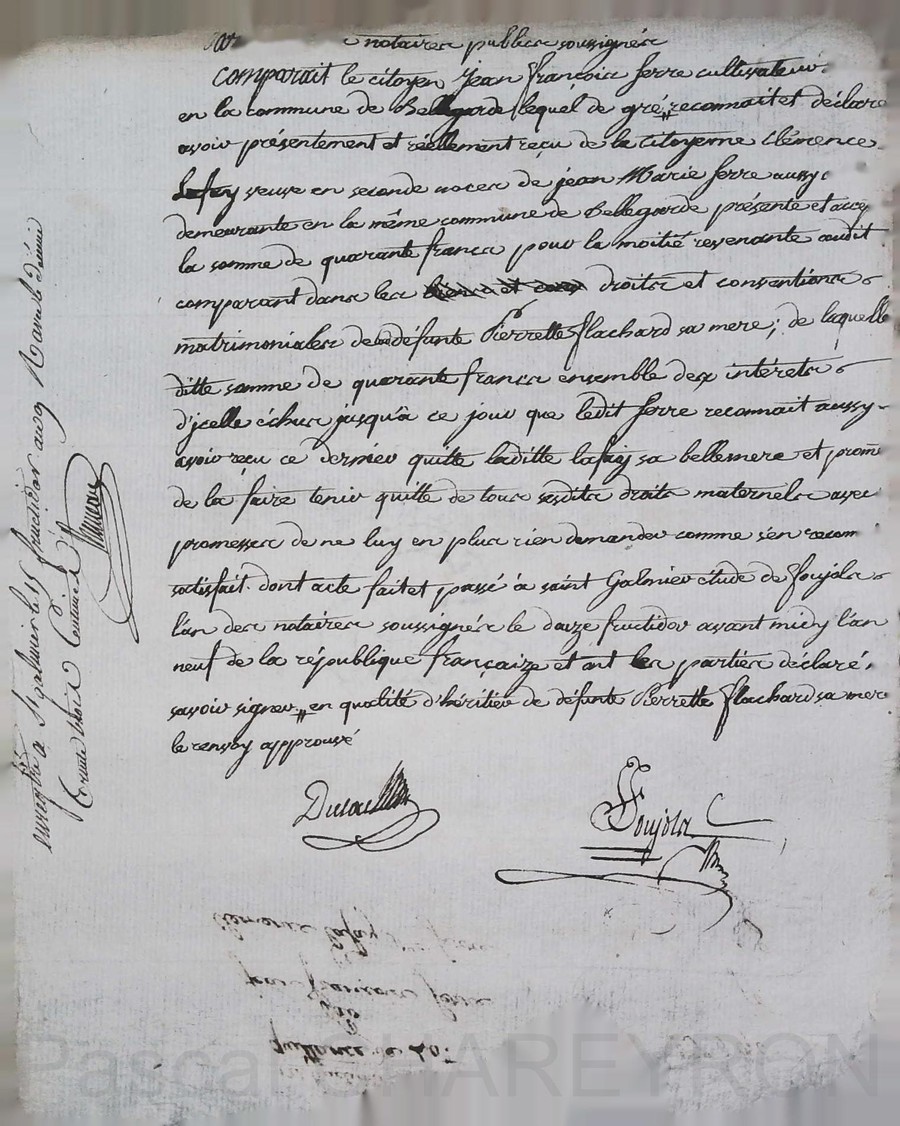 notaires publics soussignés
comparait le citoyen Jean françois ferre cultivateur
en la commune de Bellegarde lequel de gré, reconnait et déclare
avoir présentement et réellement reçu de la Citoyenne Clémence
Lafay veuve en seconde noces de jean Marie ferre aussy
demeurante en la même commune de Bellegarde présente et
la somme de quarante francs pour la moitié revenante audit
comparant dans les droits et conventions
matrimoniales de défunte Pierrette flachard sa mere; de laquelle
ditte somme de quarante francs ensemble des intérets
d'jcelle échus jusqu'à ce jour que ledit ferre reconnait aussy
avoir reçu ce dernier quitte laditte lafay sa bellemere et prom
de la faire tenir quitte de tous sesdits droits maternels avec
promesses de ne luy en plus rien demander comme s'en
satisfait. dont acte fait et passé à saint Galmier étude de foujols
l'un des notaires soussignés le douze fructidor avant midy l'an
neuf de la république françaize et ont les parties déclaré
savoir signer. en qualité d'héritier de défunte Pierrette flachard sa mere
le renvoy approuvé
Foujols
enregistré à St galmier le 15 fructidor an 9
clemence lafay
jean françois ferre
quittance de 40ᶠ
Pascal CHAREYRON